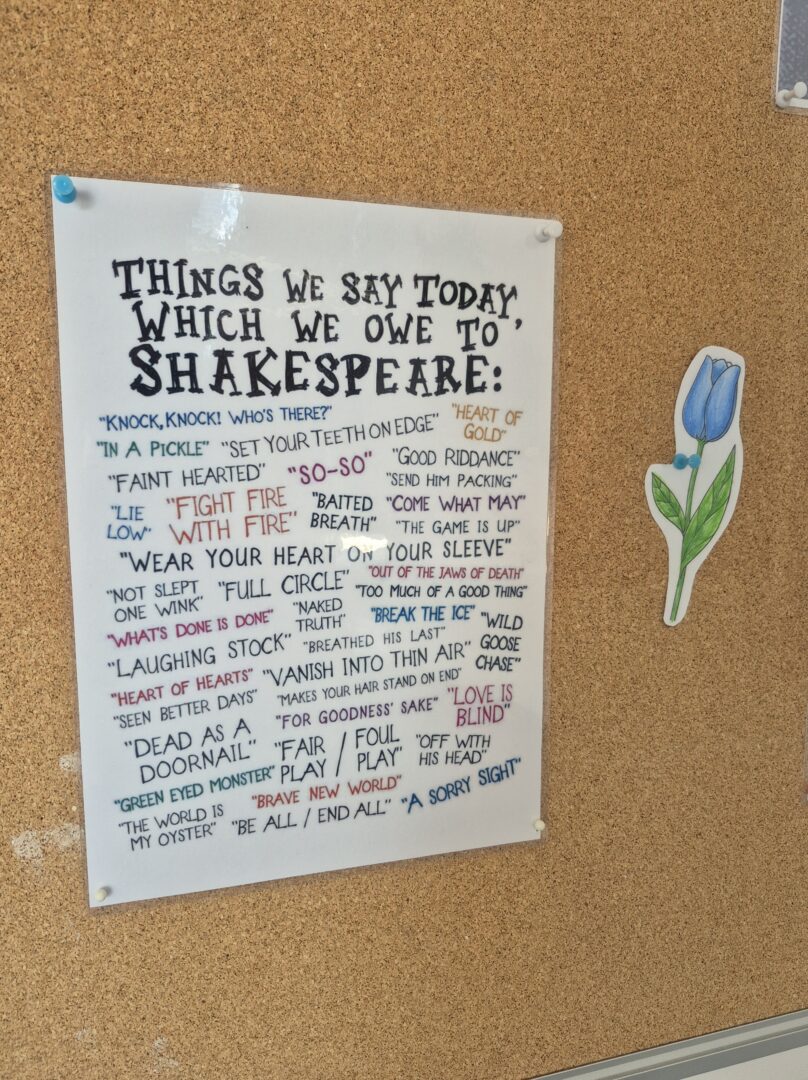 THINGS WE SAY TODAY,
WHICH WE OWE TO
SHAKESPEARE:
"KNOCK, KNOCK! WHO'S THERE?"
"HEART OF
GOLD"
"IN A PICKLE"
"SET YOUR TEETH ON EDGE"
"FAINT HEARTED"
"SO-SO"
"GOOD RIDDANCE"
"SEND HIM PACKING"
"LIE
LOW"
"FIGHT FIRE
WITH FIRE"
"BAITED
BREATH"
"COME WHAT MAY"
"THE GAME IS UP"
"WEAR YOUR HEART ON YOUR SLEEVE"
"NOT SLEPT
ONE WINK"
"FULL CIRCLE"
"OUT OF THE JAWS OF DEATH"
"TOO MUCH OF A GOOD THING"
"WHAT'S DONE IS DONE"
"NAKED
TRUTH"
"BREAK THE ICE"
"WILD
GOOSE
CHASE"
"LAUGHING STOCK"
"BREATHED HIS LAST"
"HEART OF HEARTS"
"VANISH INTO THIN AIR"
"SEEN BETTER DAYS"
"MAKES YOUR HAIR STAND ON END"
"FOR GOODNESS' SAKE"
"LOVE IS
BLIND"
"DEAD AS A
DOORNAIL"
"FAIR / FOUL
PLAY / PLAY"
"OFF WITH
HIS HEAD"
"GREEN EYED MONSTER"
"BRAVE NEW WORLD"
"A SORRY SIGHT"
"THE WORLD IS
MY OYSTER"
"BE ALL / END ALL"